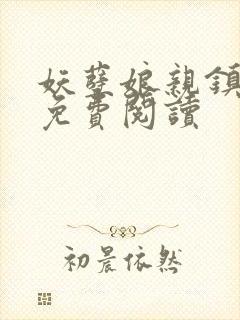 妖孽娘親鎮
免費閱讀
初晨依然